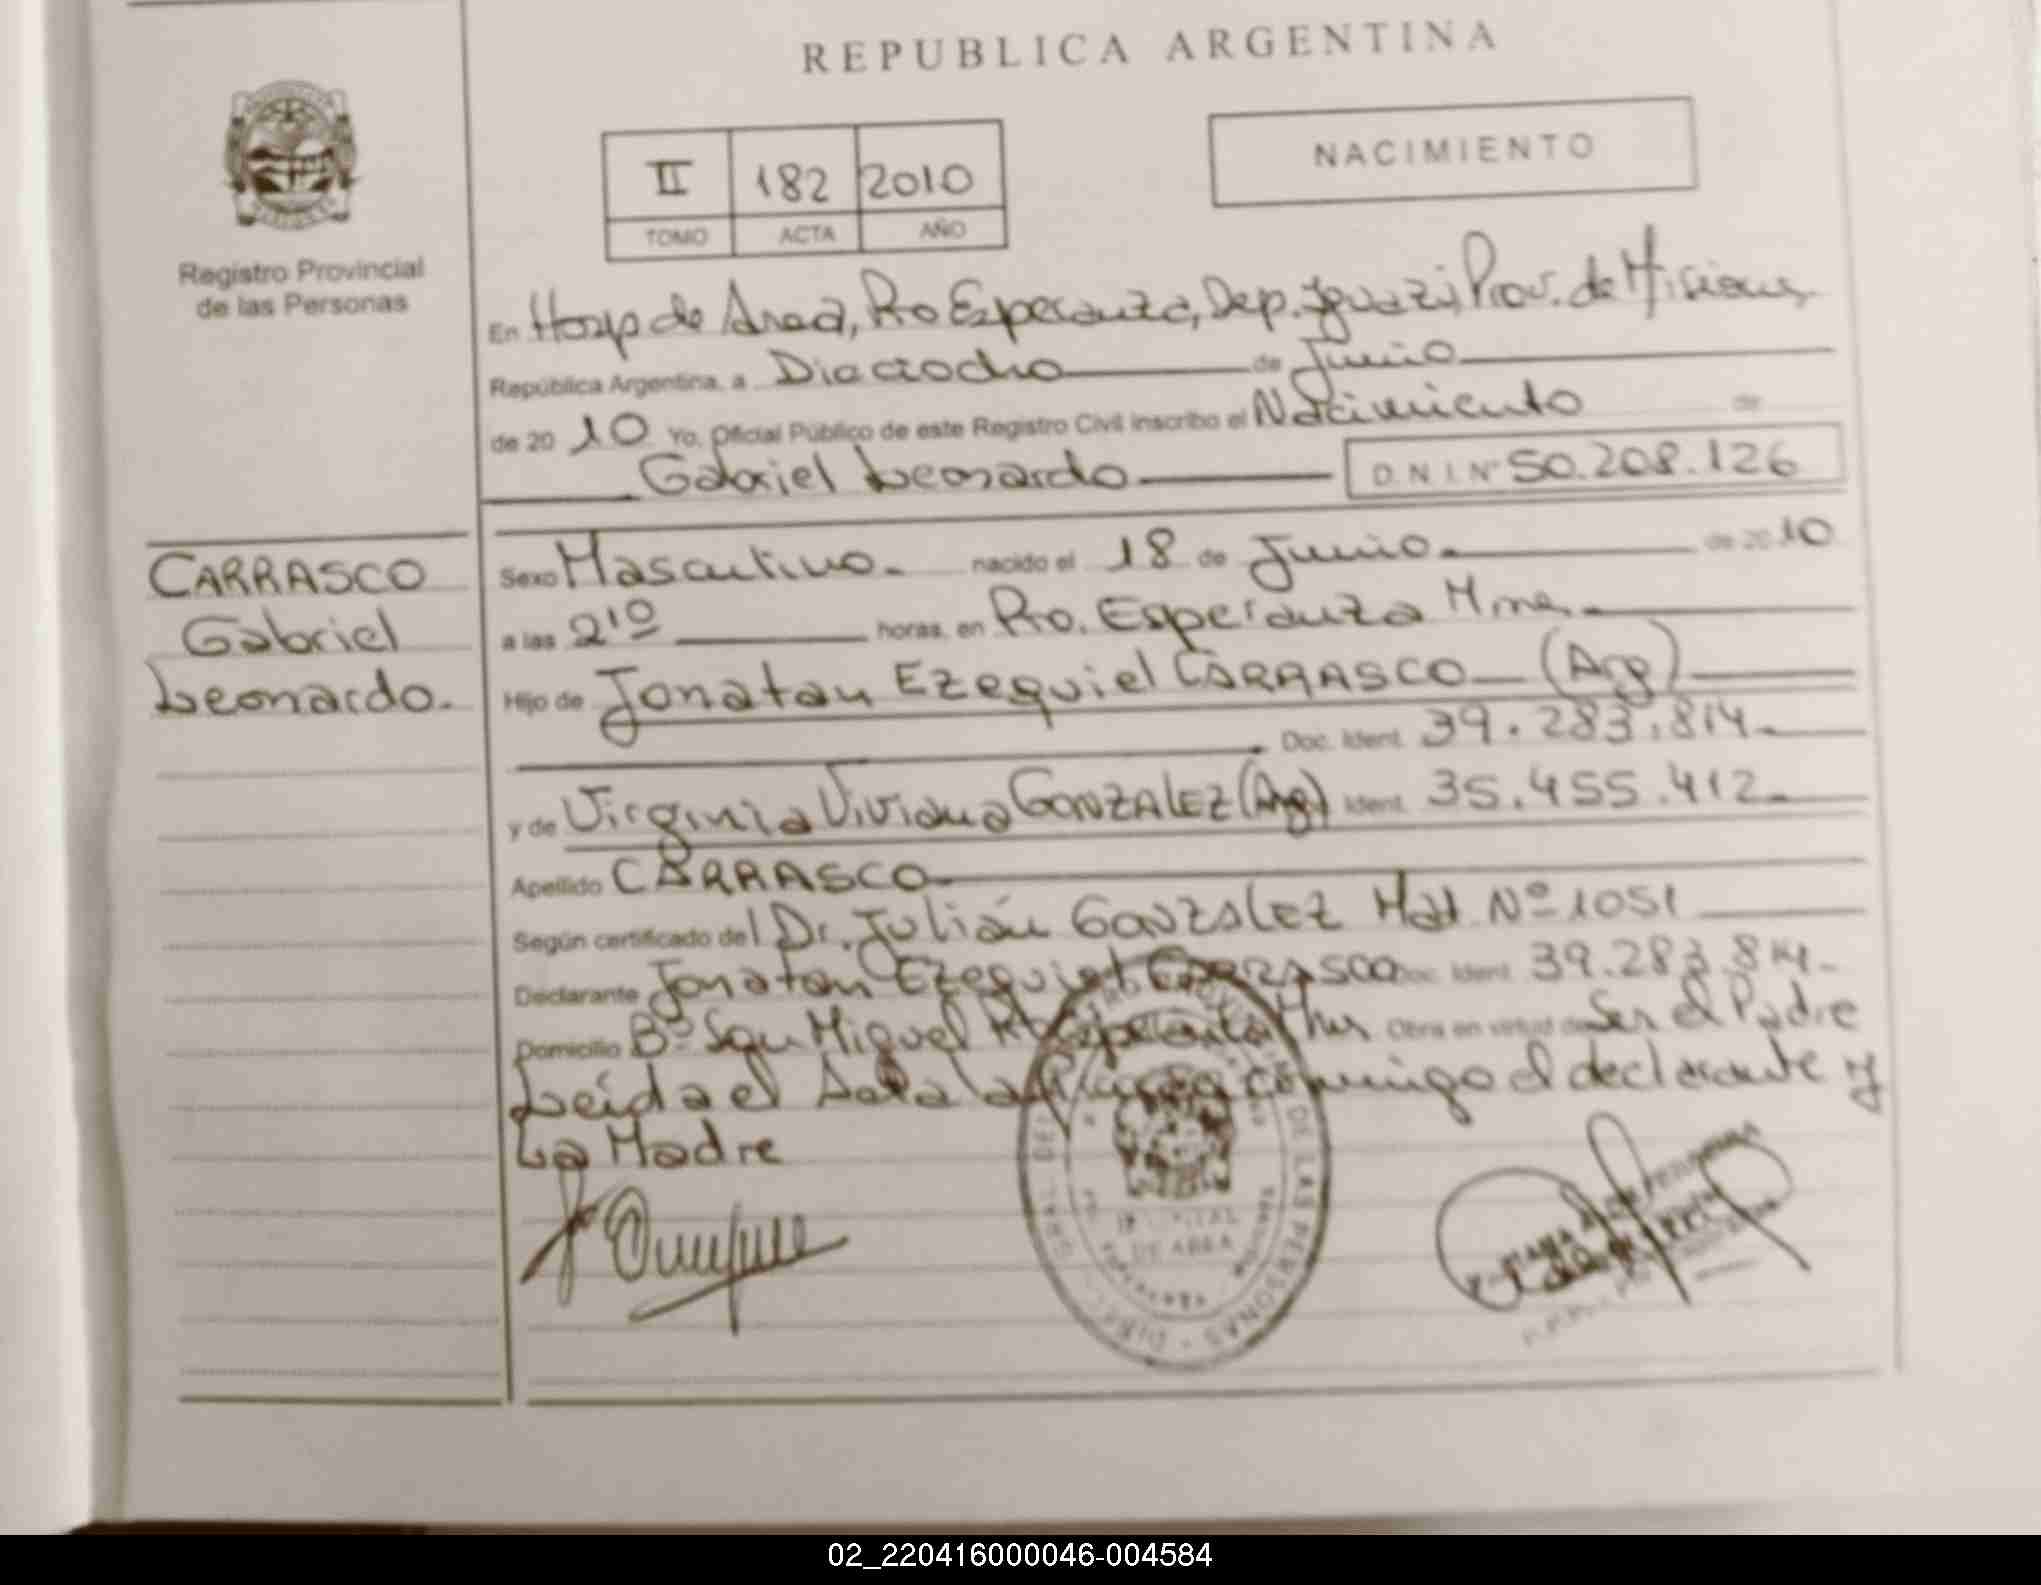 REPUBLICA ARGENTINA
NACIMIENTO
II 182 2010
TOMO ACTA AÑO
Registro Provincial
de las Personas
En Hosp de Area, Pto Esperanza, Dep. Iguazú, Prov. de Misiones
República Argentina, a Dieciocho de Junio
de 20 10 Yo, Oficial Público de este Registro Civil inscribo el Nacimiento de
Gabriel Leonardo D N I Nº 50.208.126
CARRASCO
Gabriel
Leonardo.
Sexo Masculino. nacido el 18 de Junio. de 20 10
a las 2¹⁰ horas, en Pto. Esperanza Mnes.
Hijo de Jonatan Ezequiel CARRASCO (Arg)
Doc. Ident. 39.283.814.
y de Virginia Viviana GONZALEZ (Arg) Ident. 35.455.412.
Apellido CARRASCO
Según certificado del Dr. Julián GONZALEZ Mat Nº 1051
Declarante Jonatan Ezequiel CARRASCO Doc. Ident. 39.283.814.
Domicilio Bº San Miguel Pto Esperanza Mnes Obra en virtud de Ser el Padre
Leída el Acta la firma conmigo el declarante y
La Madre
DE LAS PERSONAS
HOSPITAL
DE AREA
02_220416000046-004584